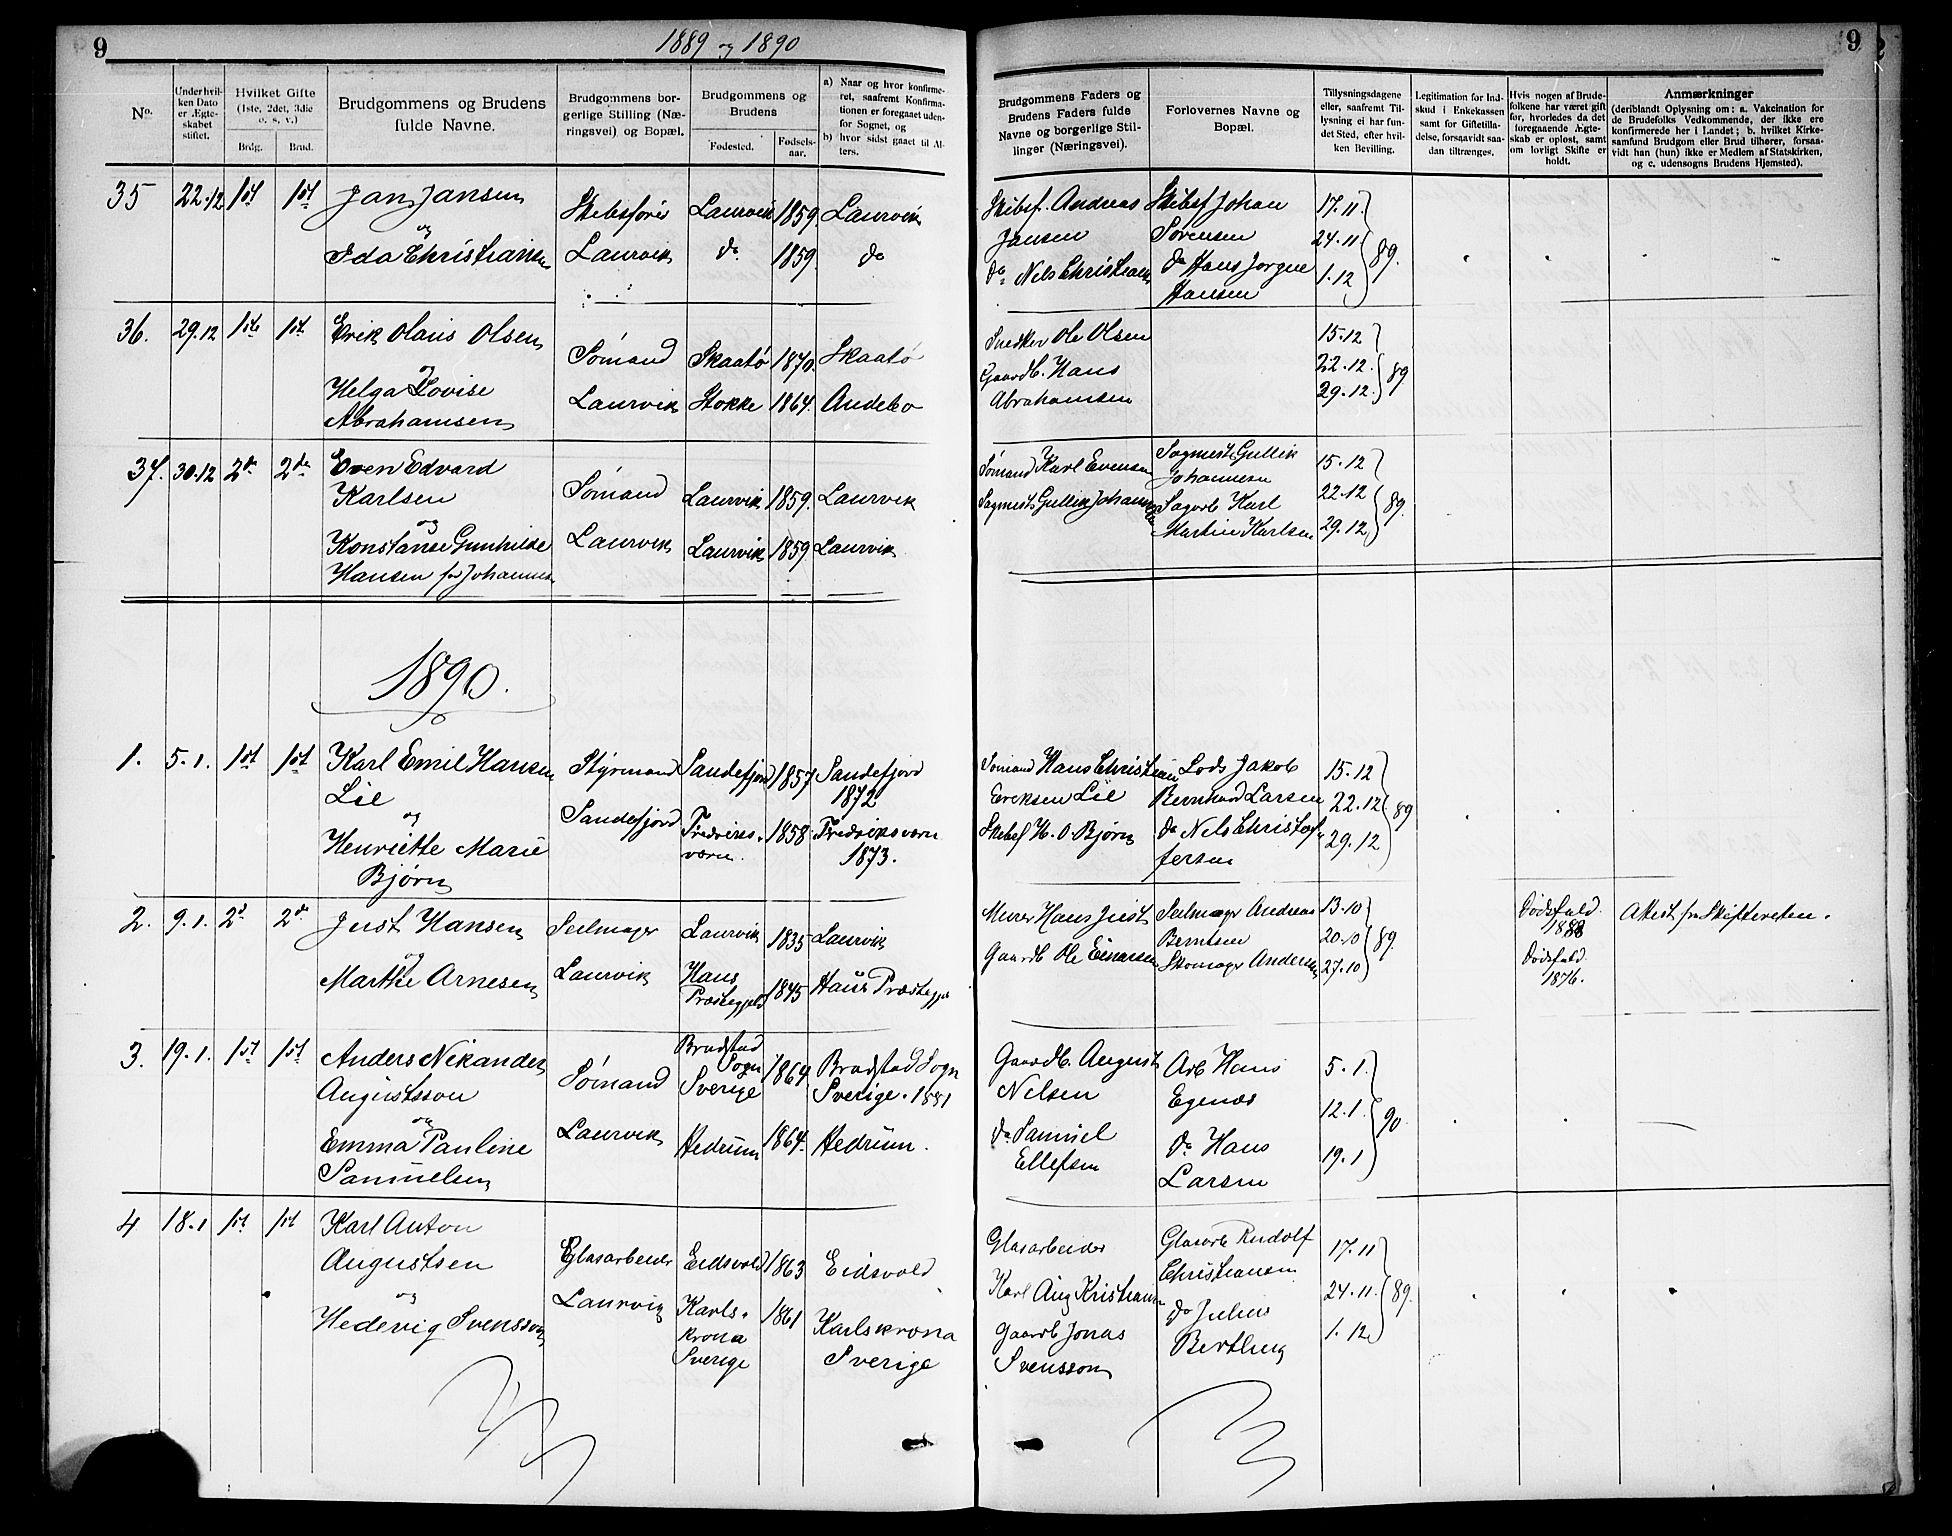 9
1889 og 1890
9
No.
Under hvil-
ken Dato
er Ægte-
skabet
stiftet.
Hvilket Gifte
(1ste, 2det, 3die
o. s. v.)
Brdg.
Brud.
Brudgommens og Brudens
fulde Navne.
Brudgommens bor-
gerlige Stilling (Næ-
ringsvei) og Bopæl.
Brudgommens og
Brudens
Fødested.
Fødsels-
aar.
a) Naar og hvor konfirme-
ret, saafremt Konfirma-
tionen er foregaaet uden-
for Sognet, og
b) hvor sidst gaaet til Al-
ters.
Brudgommens Faders og
Brudens Faders fulde
Navne og borgerlige Stil-
linger (Næringsvei).
Forlovernes Navne og
Bopæl.
Tillysningsdagene
eller, saafremt Til-
lysning ei har fun-
det Sted, efter hvil-
ken Bevilling.
Legitimation for Ind-
skud i Enkekassen
samt for Giftetilla-
delse, forsaavidt saa-
dan tiltrænges.
Hvis nogen af Brude-
folkene har været gift
før, hvorledes da det
foregaaende Ægte-
skab er opløst, samt
om lovligt Skifte er
holdt.
Anmærkninger
(deriblandt Oplysning om: a. Vakcination for
de Brudefolks Vedkommende, der ikke ere
konfirmerede her i Landet; b. hvilket Kirke-
samfund Brudgom eller Brud tilhører, forsaa-
vidt han (hun) ikke er Medlem af Statskirken,
og c. udensogns Brudens Hjemsted).
35 22.12 1st 1st Jans Jansen
og
Ida Christiansen
Skibsfører
Laurvik
Laurvik 1859. Laurvik
do 1859. do
Skibsf. Andreas
Jansen
do Nels Christians
Skibsf Johan
Sørensen
do Hans Jørgen
Hansen
17.11
24.11
1.12
89.
36. 29.12 1ste 1st Erik Olaus Olsen
og
Helga Lovise
Abrahamsen
Sømand
Laurvik
Skaatø 1870. Skaatø
Stokke 1864. Andebo
Snedker Ole Olsen
Gaardb. Hans
Abrahamsen
15.12
22.12.
29.12.
89
37. 30.12 2de 2de Even Edvard
Karlsen
og
Konstanse Gunhilde
Hansen for Johannes
Sømand
Laurvik
Laurvik 1859. Laurvik
Laurvik 1859 Laurvik
Sømand Karl Evensen
Sagmest. Gullik Johannesen
Sagmest. Gullik
Johannesen
Sagarb Karl
Martin Karlsen
15.12
22.12
29.12
89.
1890.
1. 5.1. 1st 1st Karl Emil Hansen
Lie
og
Henriette Marie
Bjørn
Styrmand
Sandefjord
Sandefjord 1857 Sandefjord
1872
Fredriks-
værn. 1858 Fredriksværn
1873.
Sømand Hans Christian
Eriksen Lie
Skibsf H. O. Bjørn
Lods Jakob
Bernhard Larsen
do Nels Christof-
fersen
15.12
22.12
29.12
89
2. 9.1. 2d 2de Just Hansen
og
Marthe Arnesen
Seilmager
Laurvik
Laurvik 1835 Laurvik
Haus
Præstegjeld 1845 Haus Præstegje
Murer Hans Just
Gaardb Ole Einarsen
Seilmager Andreas
Berntsen
Skomager Andersen
13.10
20.10
27.10
89
Dødsfald.
1888
Dødsfald.
1876.
Attest fra Skifteretten.
3. 19.1. 1st 1st Anders Nikander
Augustsson
og
Emma Pauline
Samuelsen
Sømand
Laurvik
Brastad
Sogn
Sverige 1864 Brastad Sogn
Sverige. 1881
Hedrum 1864. Hedrum.
Gaardb. August
Nelsen
do Samuel
Ellefsen
Arb Hans
Egenæs
do Hans
Larsen
5.1.
12.1.
19.1
90
4 18.1 1st 1st Karl Anton
Augustsen
og
Hedevig Svensson
Glasarbeider
Laurvik
Eidsvold 1863 Eidsvold
Karls-
krona
Sverige 1861 Karlskrona
Sverige
Glasarbeider
Karl Aug Kristians
Gaardb Jonas
Svensson
Glasarb Rudolf
Christiansen
do Julius
Bertling
17.11
24.11.
1.12
89.